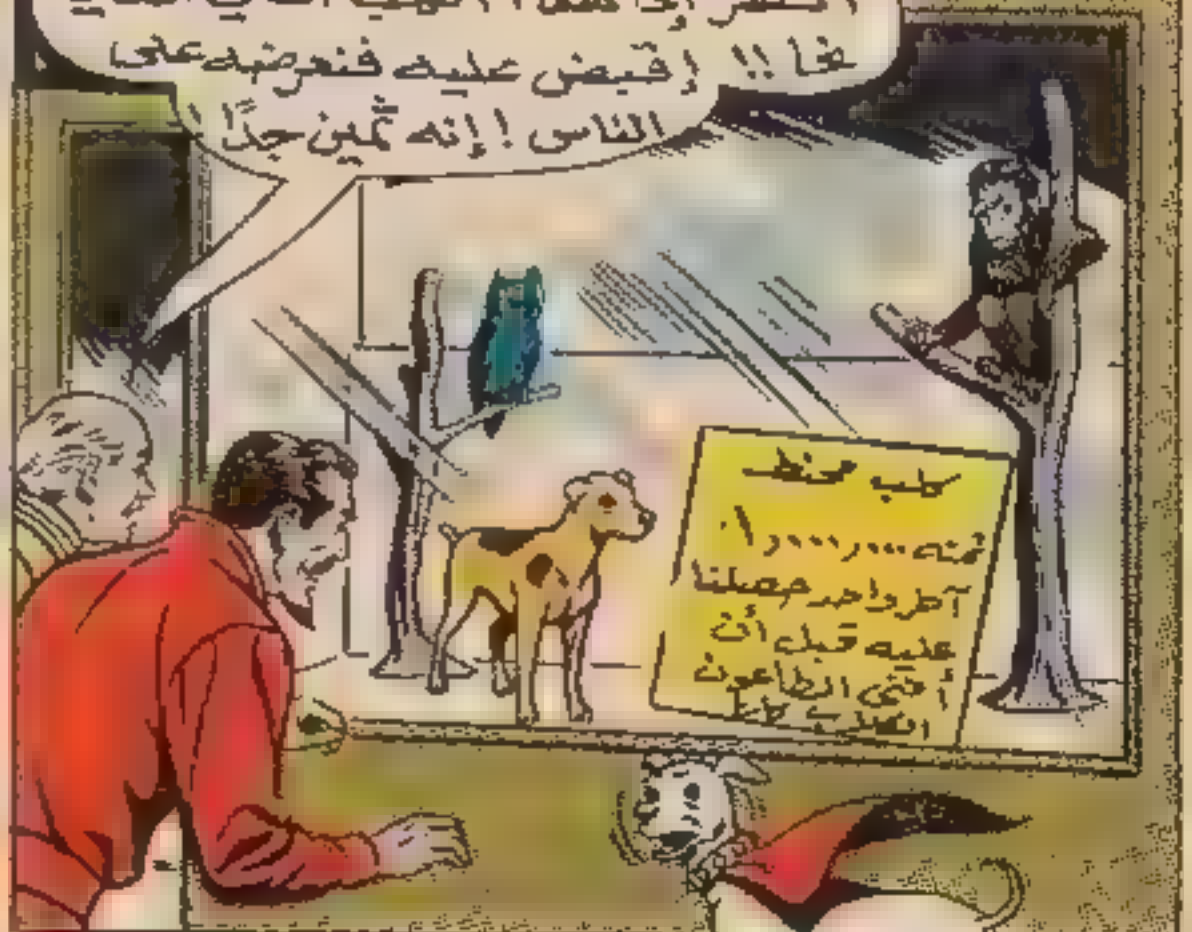 هنا !! إقبض عليه فنعرضه على
الناس ! إنه ثمين جدًا !
كلب محنط
ثمنه ١,٠٠٠,٠٠٠.
آخر واحد حصلنا
عليه قبل أن
أفنى الطاعون
الكلاب